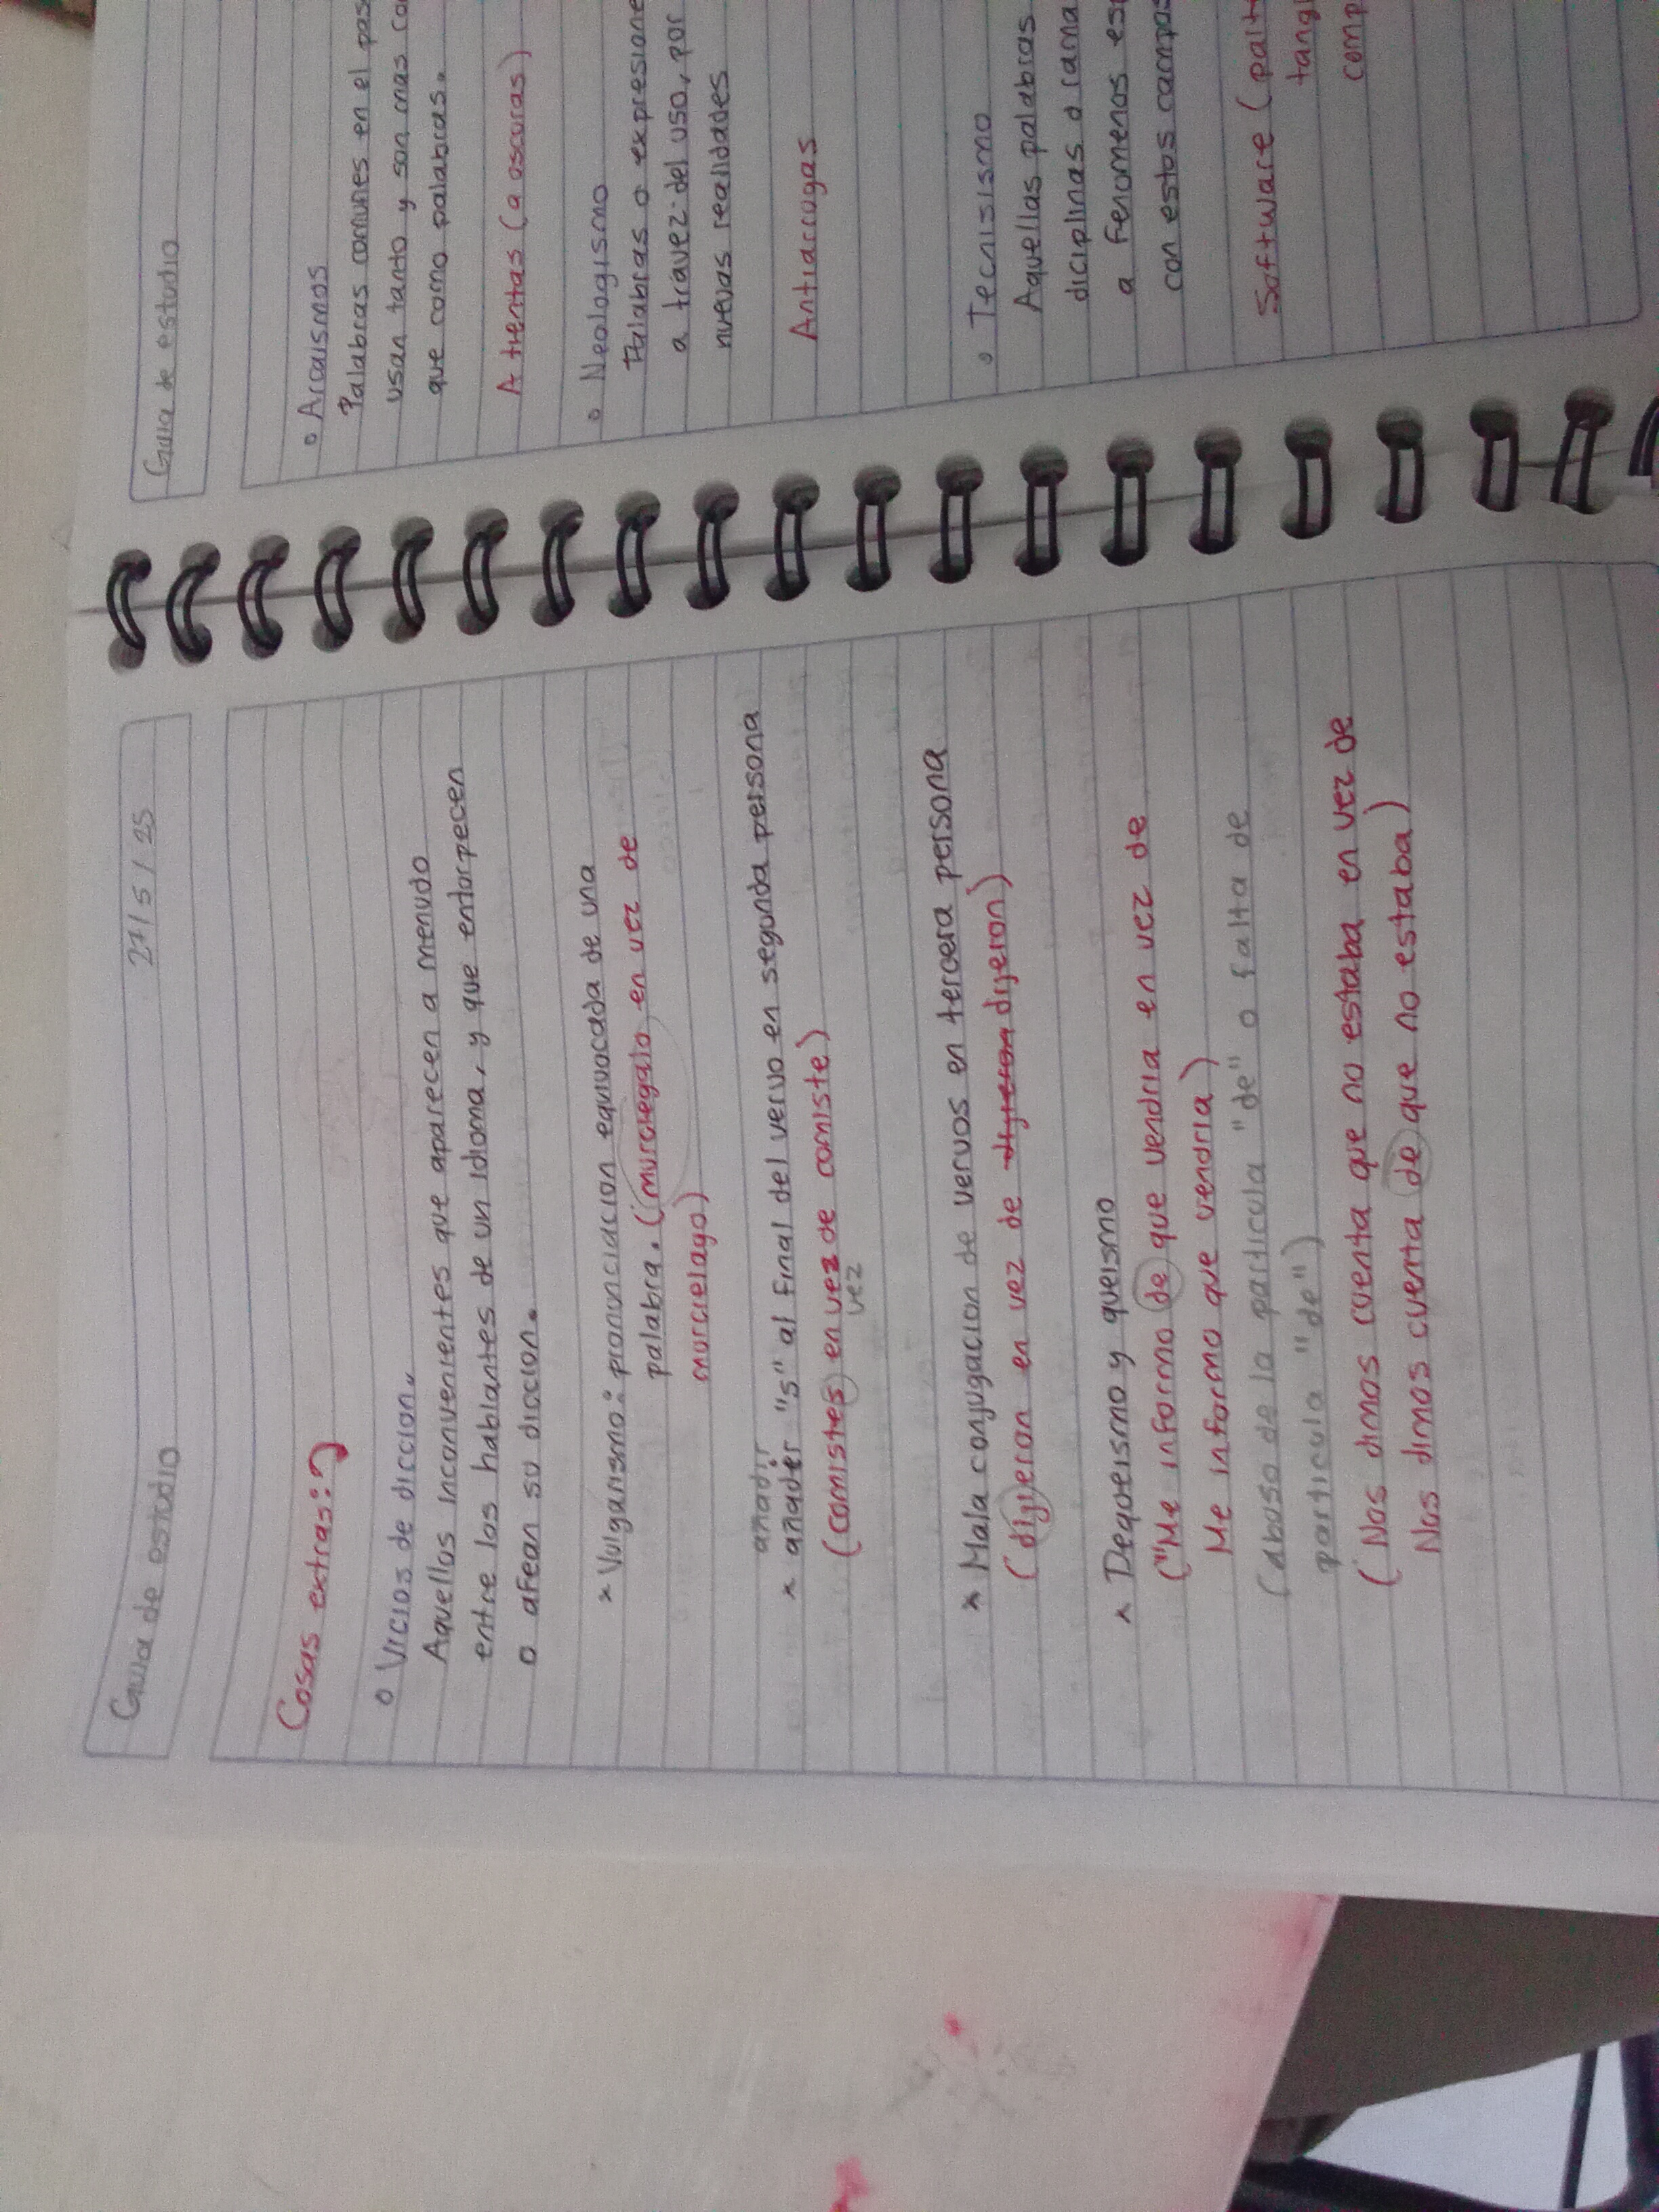 Guia de estudio
27/5/25
Cosas extras:
Vicios de diccion.
Aquellos inconvenientes que aparecen a menudo
entre los hablantes de un idioma, y que entorpecen
o afean su diccion.
* Vulgarismo: pronunciacion equivocada de una
palabra. (murciegalo en vez de
murcielago)
añadir
* añader "s" al final del vervo en segunda persona
(comistes en vez de comiste)
vez
* Mala conjugacion de vervos en tercera persona
(dijieron en vez de dijeron)
* Dequeismo y queismo
("Me informo de que vendria en vez de
Me informo que vendria)
(abuso de la particula "de" o falta de
particula "de")
(Nos dimos cuenta que no estaba en vez de
Nos dimos cuenta de que no estaba)
Guia de estudio
Arcaismos
Palabras comunes en el pas
usan tanto y son mas co
que como palabras.
A tientas (a oscuras)
Neologismo
Palabras o expresione
a travez del uso, por
nuevas realidades
Antiarrugas
Tecnisismo
Aquellas palabras
diciplinas o rama
a fenomenos es
con estos campos
Software (palt
tangi
comp